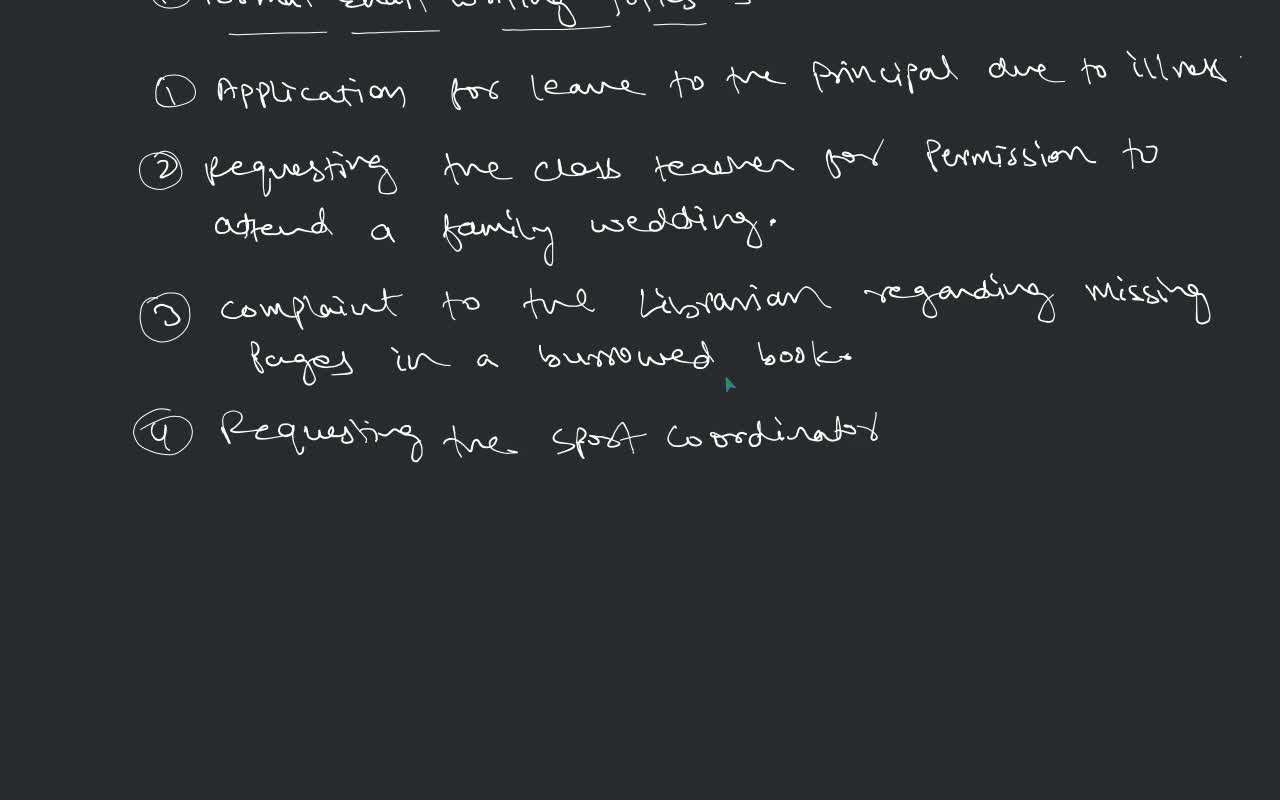 ① Formal Email writing Topics :
① Application for leave to the principal due to illness
② Requesting the class teacher for Permission to
attend a family wedding.
③ Complaint to the Librarian regarding missing
Pages in a burrowed book.
④ Requesting the sport coordinator